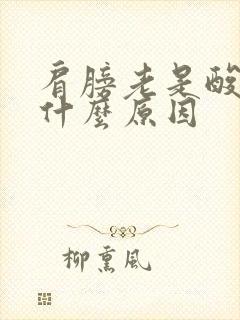 肩膀老是酸
什麼原因
柳熏风